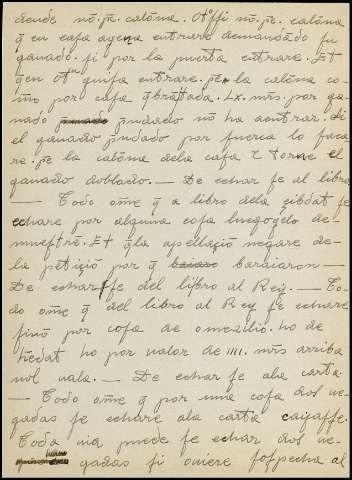 dende nõ. pe. calõma. Otºssi nõ. pe. calõma
q̃ en casa agena entrare demandãdo su
ganado. si por la puerta entrare. Et
q̃en otª guisa entrare. pe. la calõma co-
mo por casa q̃brãtada. Lx. mrs. por ga-
nado pndado no ha aentrar. Si
el ganado pndado por fuerca lo saca
re. pe la calõma dela casa τ torne el
ganado doblado. — De echar se al libro
— Todo om̃e q̃ a libro dela cibdat se
echare por alguna cosa luegogelo de-
muestrẽ. Et q̃la apellaçiõ negare de-
la petiçiõ por q̃ baraiaron —
De echarse del libro al Rey. — To-
do om̃e q̃ del libro al Rey se echare
sinõ por cosa de omezilio. ho de
hedat ho por ualor de IIII. mrs arriba
nol uala. — De echar se ala carta
— Todo om̃e q̃ por una cosa dos ue-
gadas se echare ala carta cayasse.
Toda uia puede se echar dos ue-
gadas si ouiere sospecha al